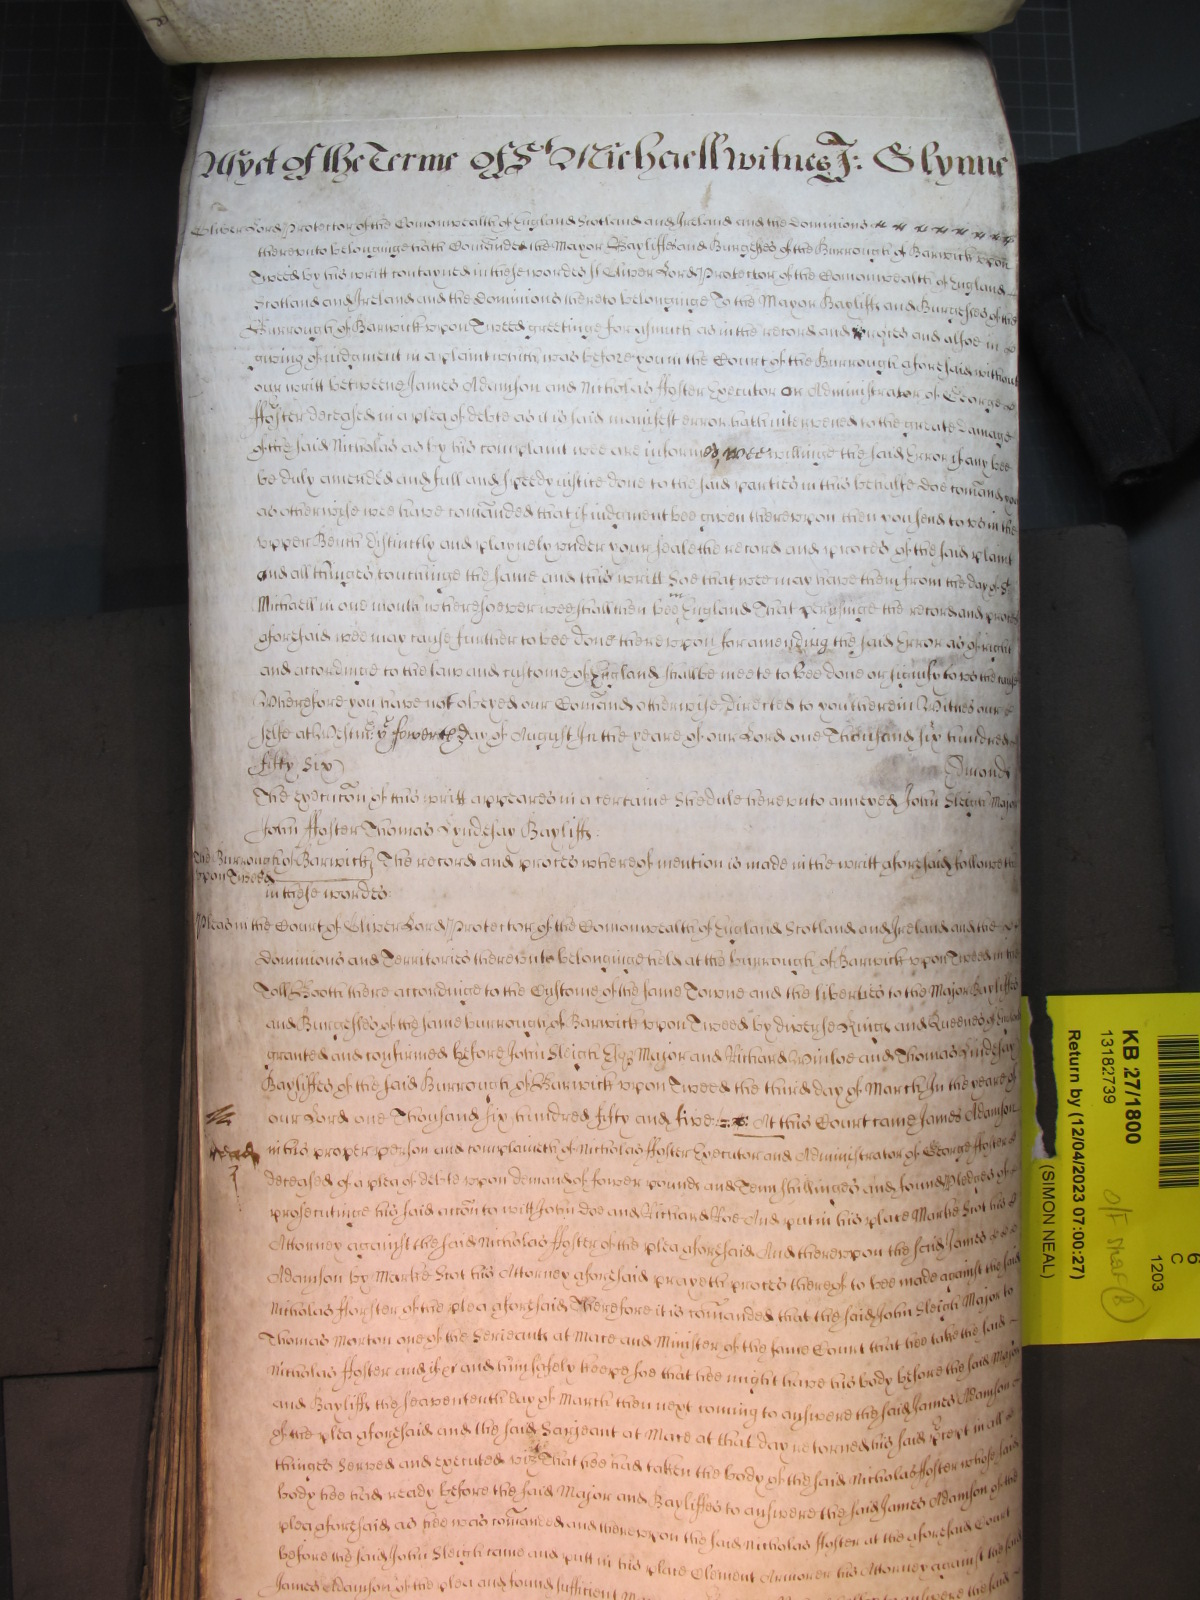 Yet of the Terme Of St Michaell witnes J: Glynne
Oliver Lord Protector of the Comonwealth of England Scotland and Ireland and the Dominions
thereunto belonginge hath Comanded the Mayor Bayliffs and Burgesses of the Burrough of Barwick upon
Tweed by his writt contayned in these wordes ss Oliver Lord Protector of the Comonwealth of England
Scotland and Ireland and the Dominions thereto belonginge To the Mayor Bayliffs and Burgesses of the
Burrough of Barwick upon Tweed greetinge forasmuch as in the record and proces and alsoe in
giving of iudgment in a plaint which was before you in the Court of the Burrough aforesaid without
our writt betweene James Adamson and Nicholas ffoster Executor or Administrator of George
ffoster deceased in a plea of debte as it is said manifest error hath intervened to the greate Damage
of the said Nicholas as by his complaint wee are informed, wee willinge the said Error if any bee
be duly amended and full and speedy iustice done to the said parties in this behalfe doe comand you
as otherwise wee have comanded that if iudgment bee given thereupon then you send to us in the
upper Bench distinctly and playnely under your seale the record and proces of the said plaint
and all thinges touchinge the same and this writt Soe that wee may have them from the day of St
Michaell in one month wheresoever wee shall then bee in England That perusinge the record and proces
aforesaid wee may cause further to bee done thereupon for amending the said Error as of right
and accordinge to the law and custome of England shalbe meete to bee done or signify to us the cause
Wherefore you have not obeyed our Comand otherwise directed to you therein Witnes our
selfe at Westmr: ye fowerth day of August In the yeare of our Lord one Thousand six hundred
fifty six
Amonds
The execucon of this writt appeares in a certaine Shedule hereunto annexed John Sleigh Major
John ffoster Thomas Lyndesay Bayliffs.
The Burrough of Barwick upon Tweed
The record and proces whereof mention is made in the writt aforesaid followeth
in these wordes:
Pleas in the Court of Oliver Lord Protector of the Comonwealth of England Scotland and Ireland and the
dominions and Territories thereunto belonginge held at the burrough of Barwick upon Tweed in the
Toll Booth there accordinge to the Custome of the same Towne and the liberties to the Major Bayliffes
and Burgesses of the same burrough of Barwick upon Tweed by diverse Kings and Queenes of England
granted and confirmed before John Sleigh Esqr Major and Richard Winloe and Thomas Lyndesay
Bayliffes of the said Burrough of Barwick upon Tweed the third day of March In the yeare of
our Lord one Thousand six hundred fifty and five At this Court came James Adamson
in his proper person and complaineth of Nicholas ffoster Executor and Administrator of George ffoster
deceased of a plea of debte upon demand of fower pounds and Tenn shillinges and found Pledges of
prosecutinge his said accon to witt John Doe and Richard Roe And put in his place Marke Scot his
Attorney against the said Nicholas ffoster of the plea aforesaid And thereupon the said James
Adamson by Marke Scot his Attorney aforesaid prayeth proces thereof to bee made against the said
Nicholas fforster of the plea aforesaid Therefore it is comanded that the said John Sleigh Major to
Thomas Morton one of the Serieants at Mace and Minister of the same Court that hee take the said
Nicholas ffoster and if &c and him safely keepe soe that hee might have his body before the said Major
and Bayliffs the seavententh day of March then next coming to answere the said James Adamson
of the plea aforesaid and the said Sarjeant at Mace at that day retorned his said Precept in all
thinges Served and executed vizt That hee had taken the body of the said Nicholas ffoster whose said
body hee had ready before the said Major and Bayliffes to answere the said James Adamson of the
plea aforesaid as hee was comanded and thereupon the said Nicholas ffoster at the aforesaid Court
before the said John Sleigh came and putt in his place Clement Armorer his Attorney against the said
James Adamson of the plea and found sufficient
KB 27/1800
13182739
Return by (12/04/2023 07:00:27)
(SIMON NEAL)
6
C
1203
O/F Shelf (8)